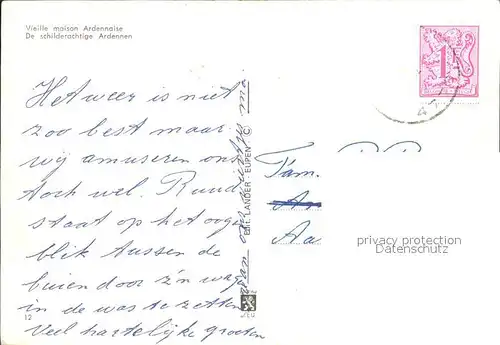 Vieille maison Ardennaise
De schilderachtige Ardennen
Het weer is niet
zoo best maar
wij amuseren ons
toch wel. Ruud
staat op het oogen
blik tussen de
buien door z'n wag
in de was te zetten
Veel hartelijke groeten
EDIT. LANDER - EUPEN C
Fam.
Aa
privacy protection
Datenschutz
1
12